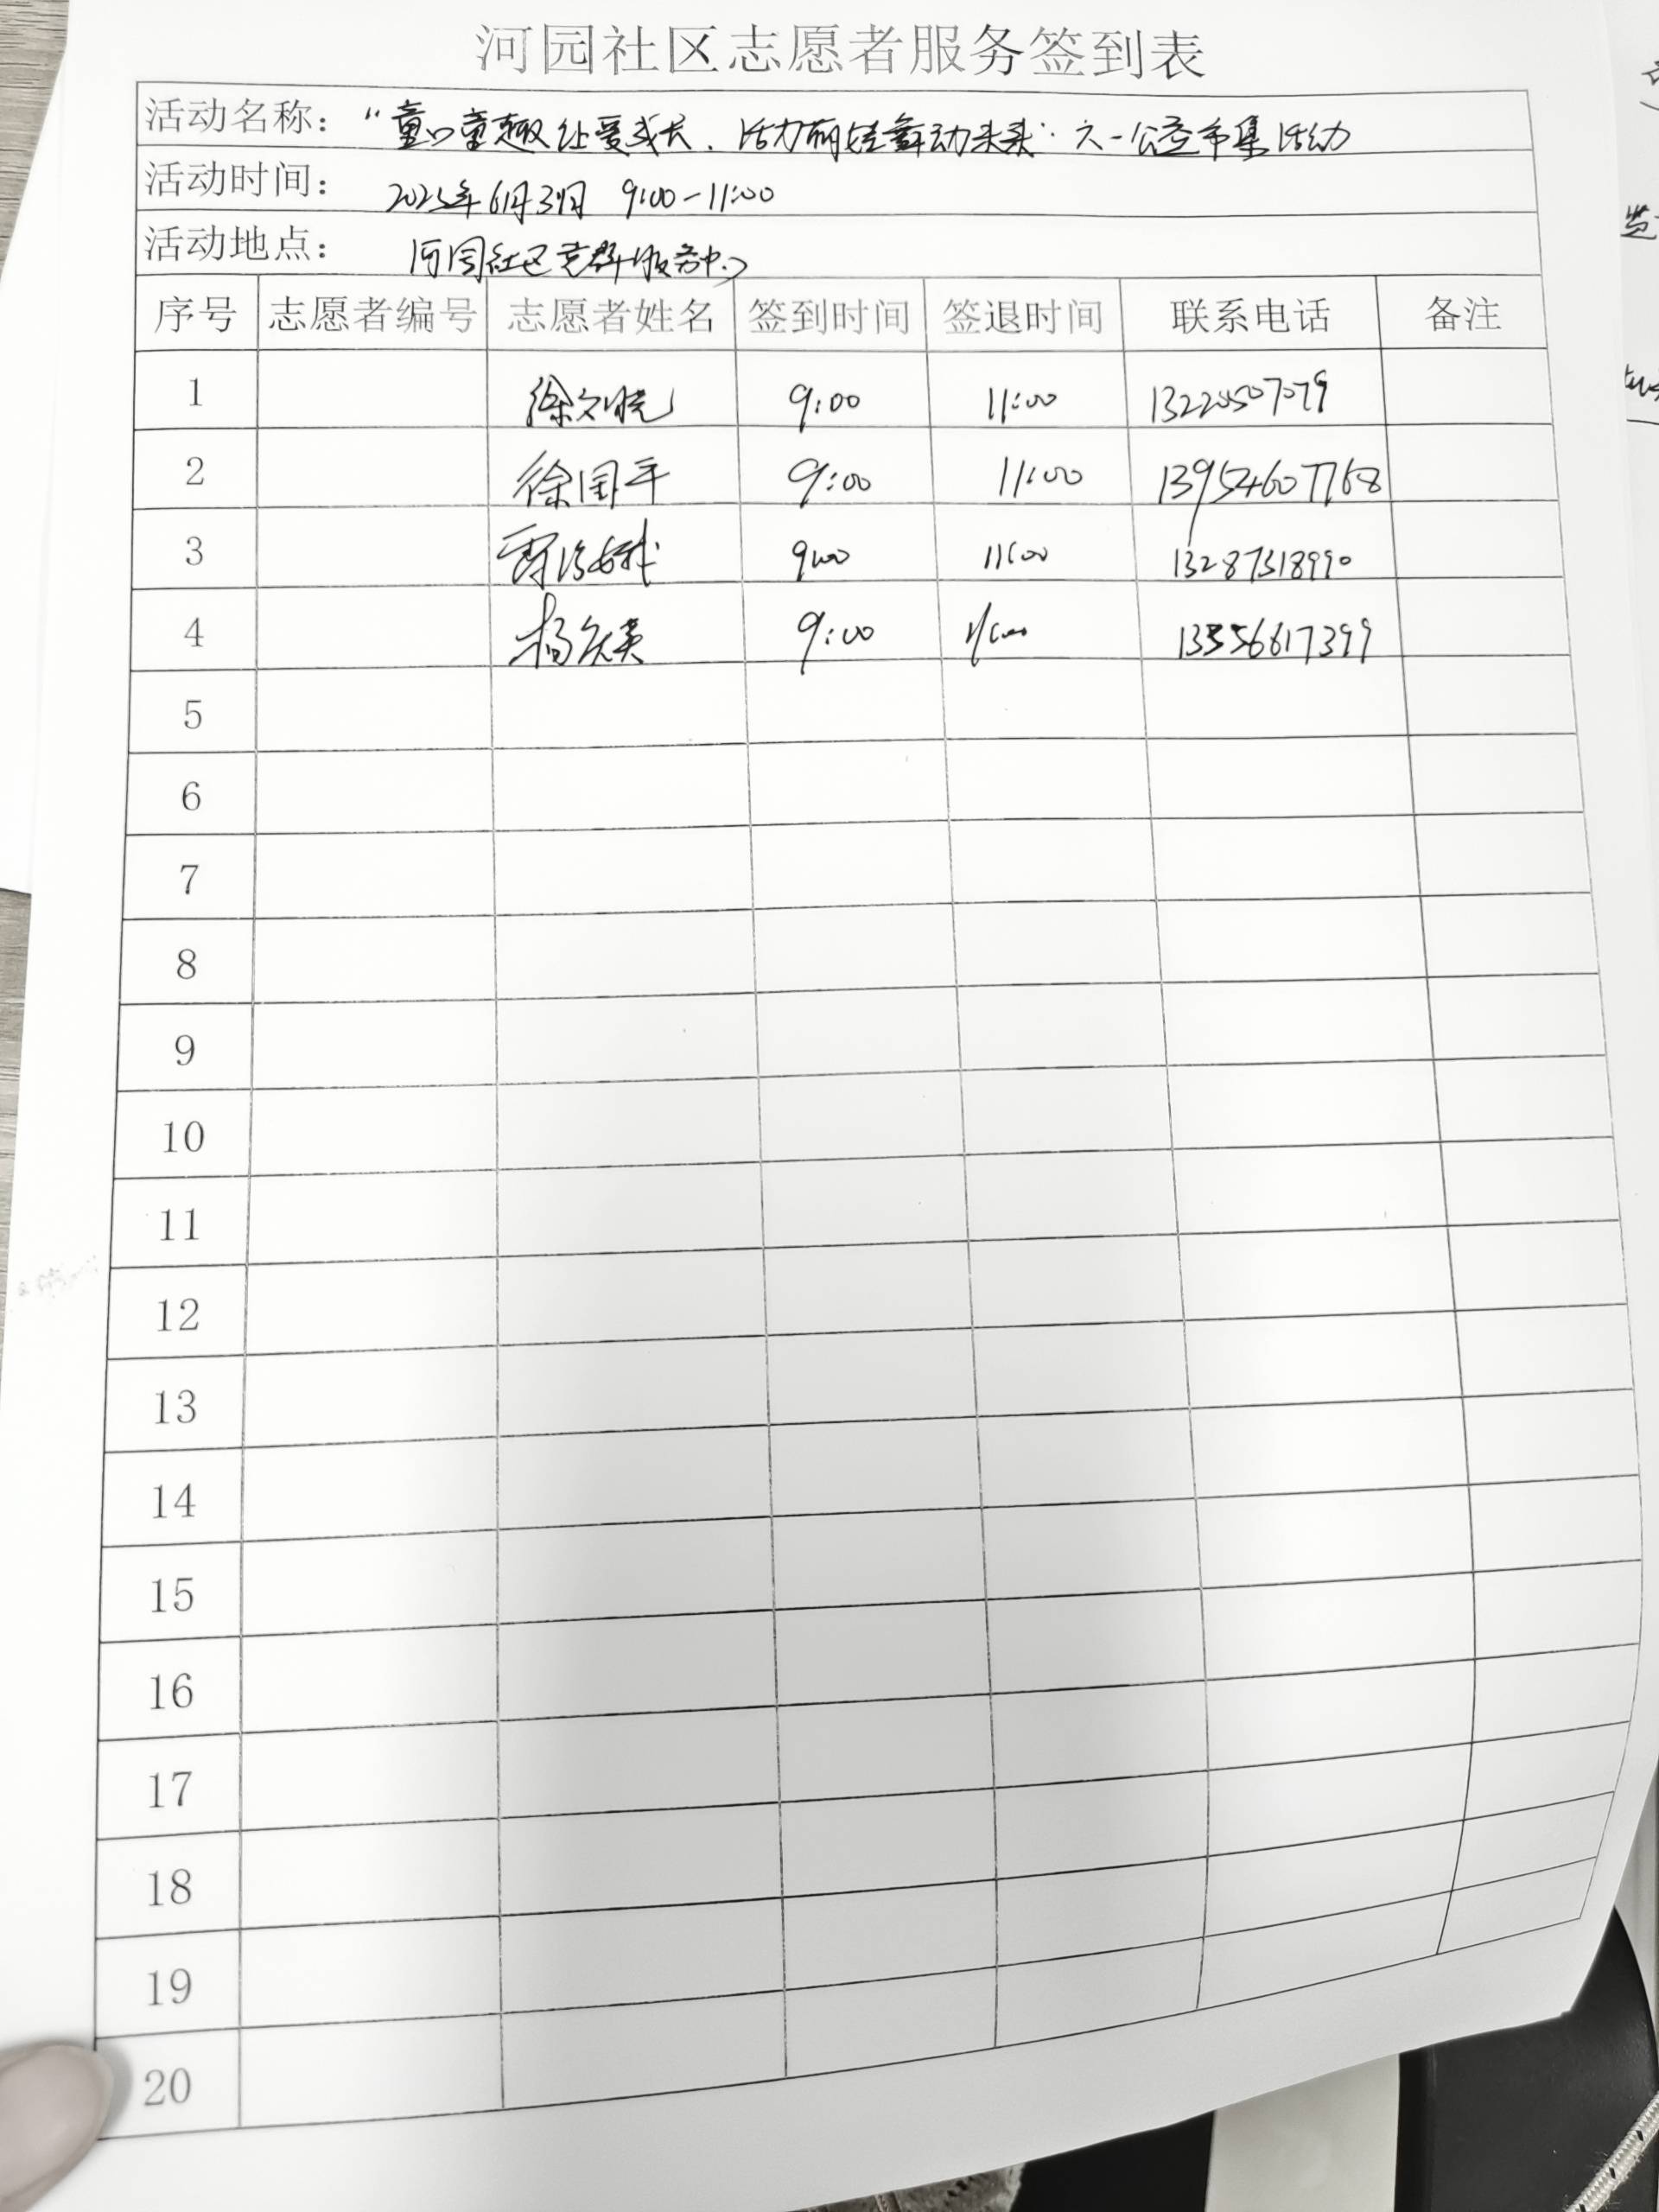 河园社区志愿者服务签到表
活动名称： “童心童趣让爱成长，活力萌娃舞动未来”六一公益市集活动
活动时间： 2025年6月3日 9:00-11:00
活动地点： 河园社区党群服务中心
序号 志愿者编号 志愿者姓名 签到时间 签退时间 联系电话 备注
1 徐文晓 9:00 11:00
2 徐国平 9:00 11:00 13954607768
3 9:00 11:00 13287318990
4 9:00 11:00 13356617399
5
6
7
8
9
10
11
12
13
14
15
16
17
18
19
20